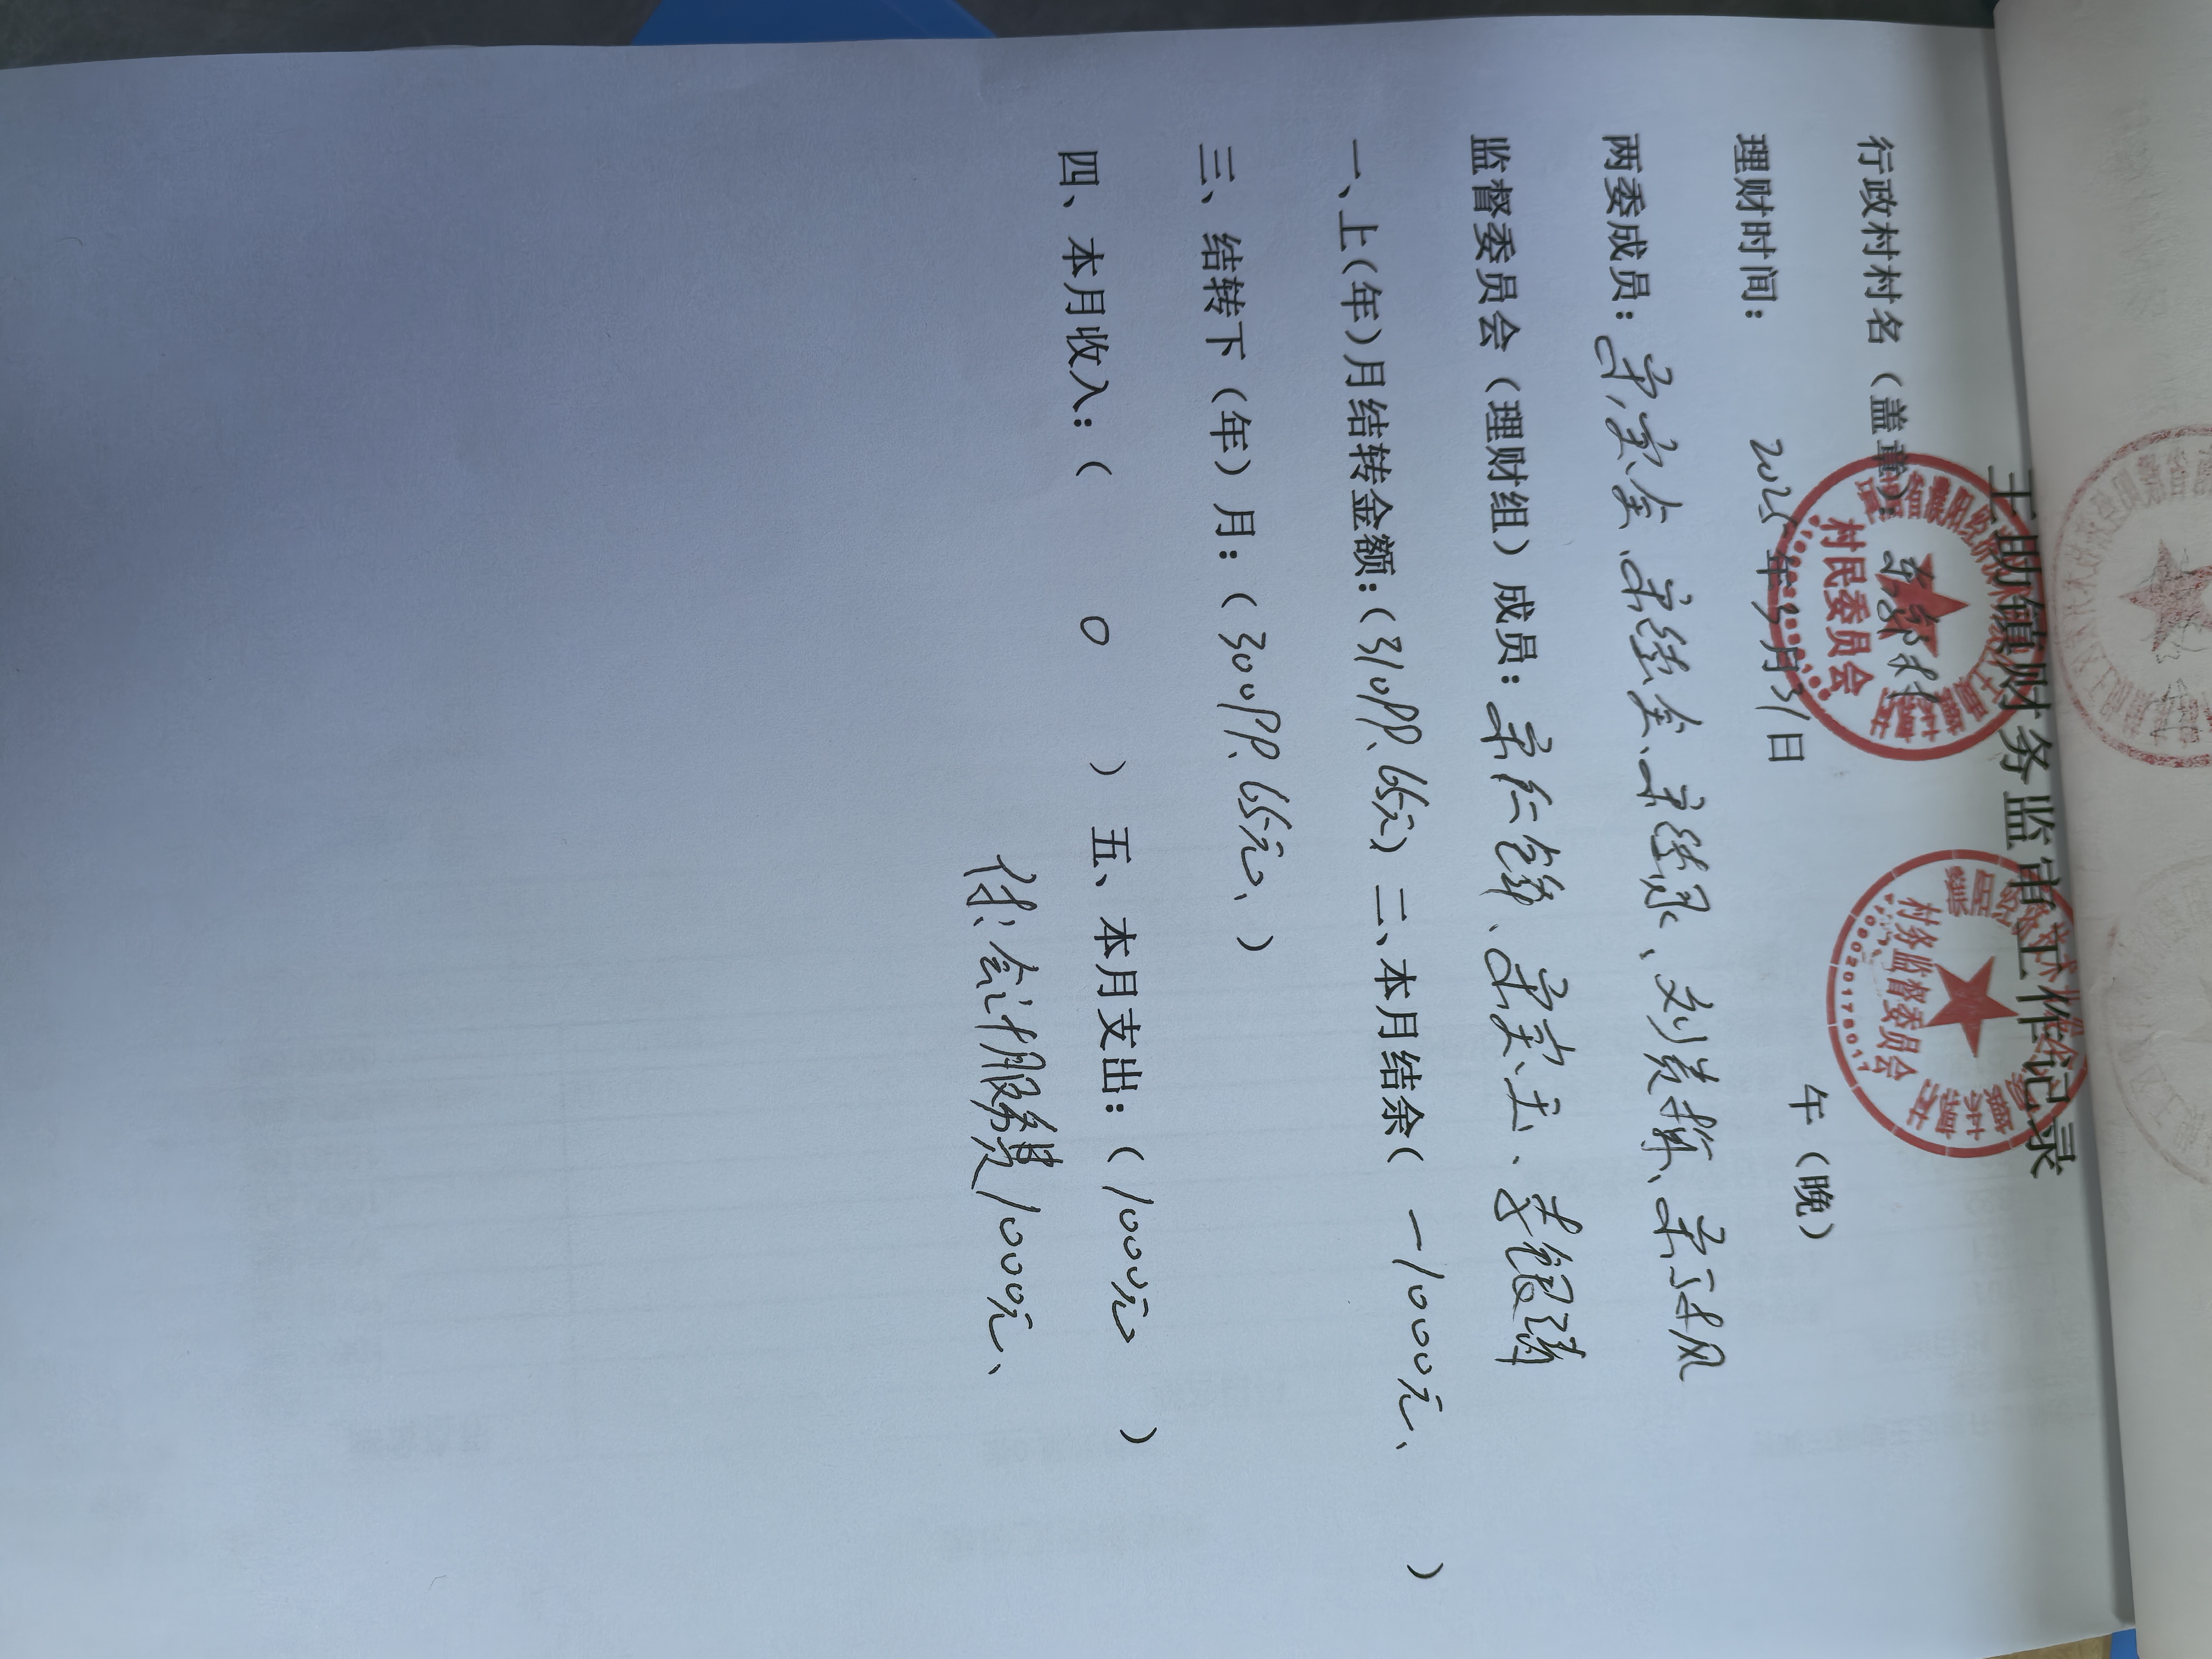 王助镇财务监审工作记录
行政村村名（盖章）：东郭村
村民委员会
村务监督委员会
理财时间： 2025年3月31日 午（晚）
两委成员：宗宏金、宗继金、宗继录、刘贵彩、宗守风
监督委员会（理财组）成员：宗仁锋、宗宏玉、李银
一、上（年）月结转金额：（31099.65元）二、本月结余（ —1000元、 ）
三、结转下（年）月：（30099.65元、）
四、本月收入：（ 0 ）五、本月支出：（1000元 ）
付：会计服务费1000元、